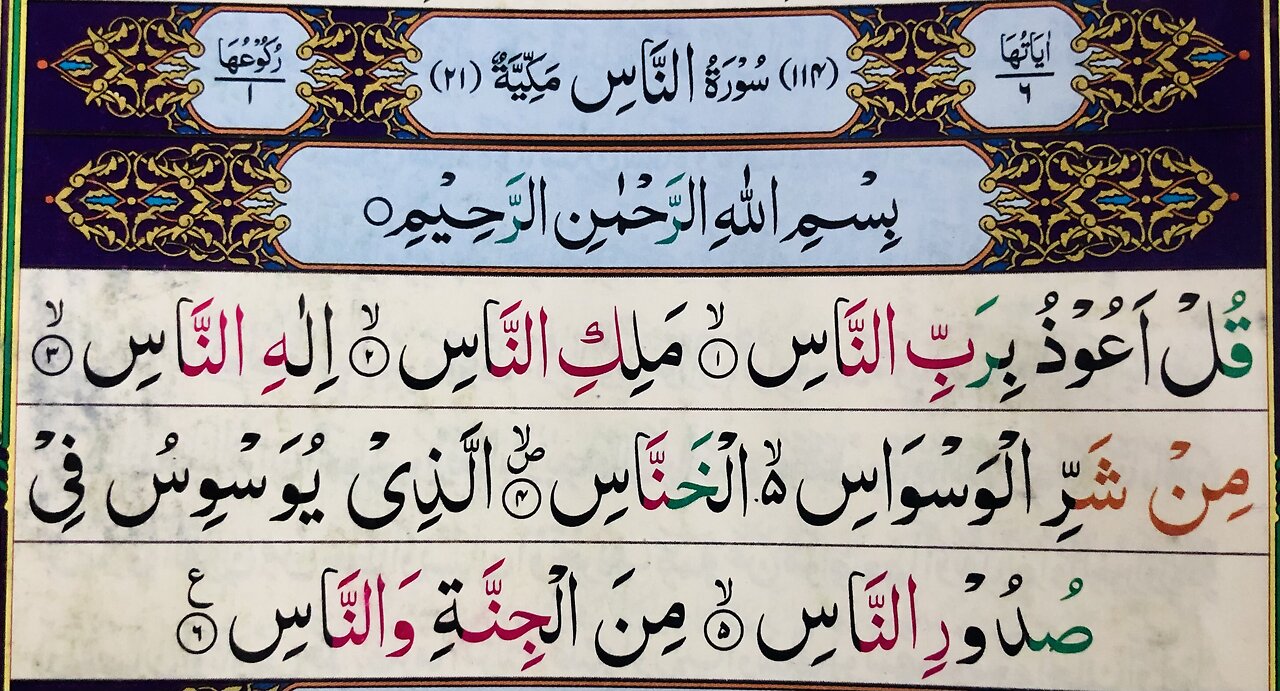 اٰيَاتُهَا ٦ (١١٤) سُوْرَةُ النَّاسِ مَكِّيَّةٌ (٢١) رُكُوْعُهَا ١
بِسْمِ اللّٰهِ الرَّحْمٰنِ الرَّحِيْمِ ○
قُلْ اَعُوْذُ بِرَبِّ النَّاسِ ۙ‏﴿۱﴾ مَلِكِ النَّاسِ ۙ‏﴿۲﴾ اِلٰهِ النَّاسِ ۙ‏﴿۳﴾
مِنْ شَرِّ الْوَسْوَاسِ ۬ۙ الْخَنَّاسِ ۪ۙ‏﴿۴﴾ الَّذِىْ يُوَسْوِسُ فِىْ
صُدُوْرِ النَّاسِ ۙ‏﴿۵﴾ مِنَ الْجِنَّةِ وَالنَّاسِ ﴿۶﴾ ع